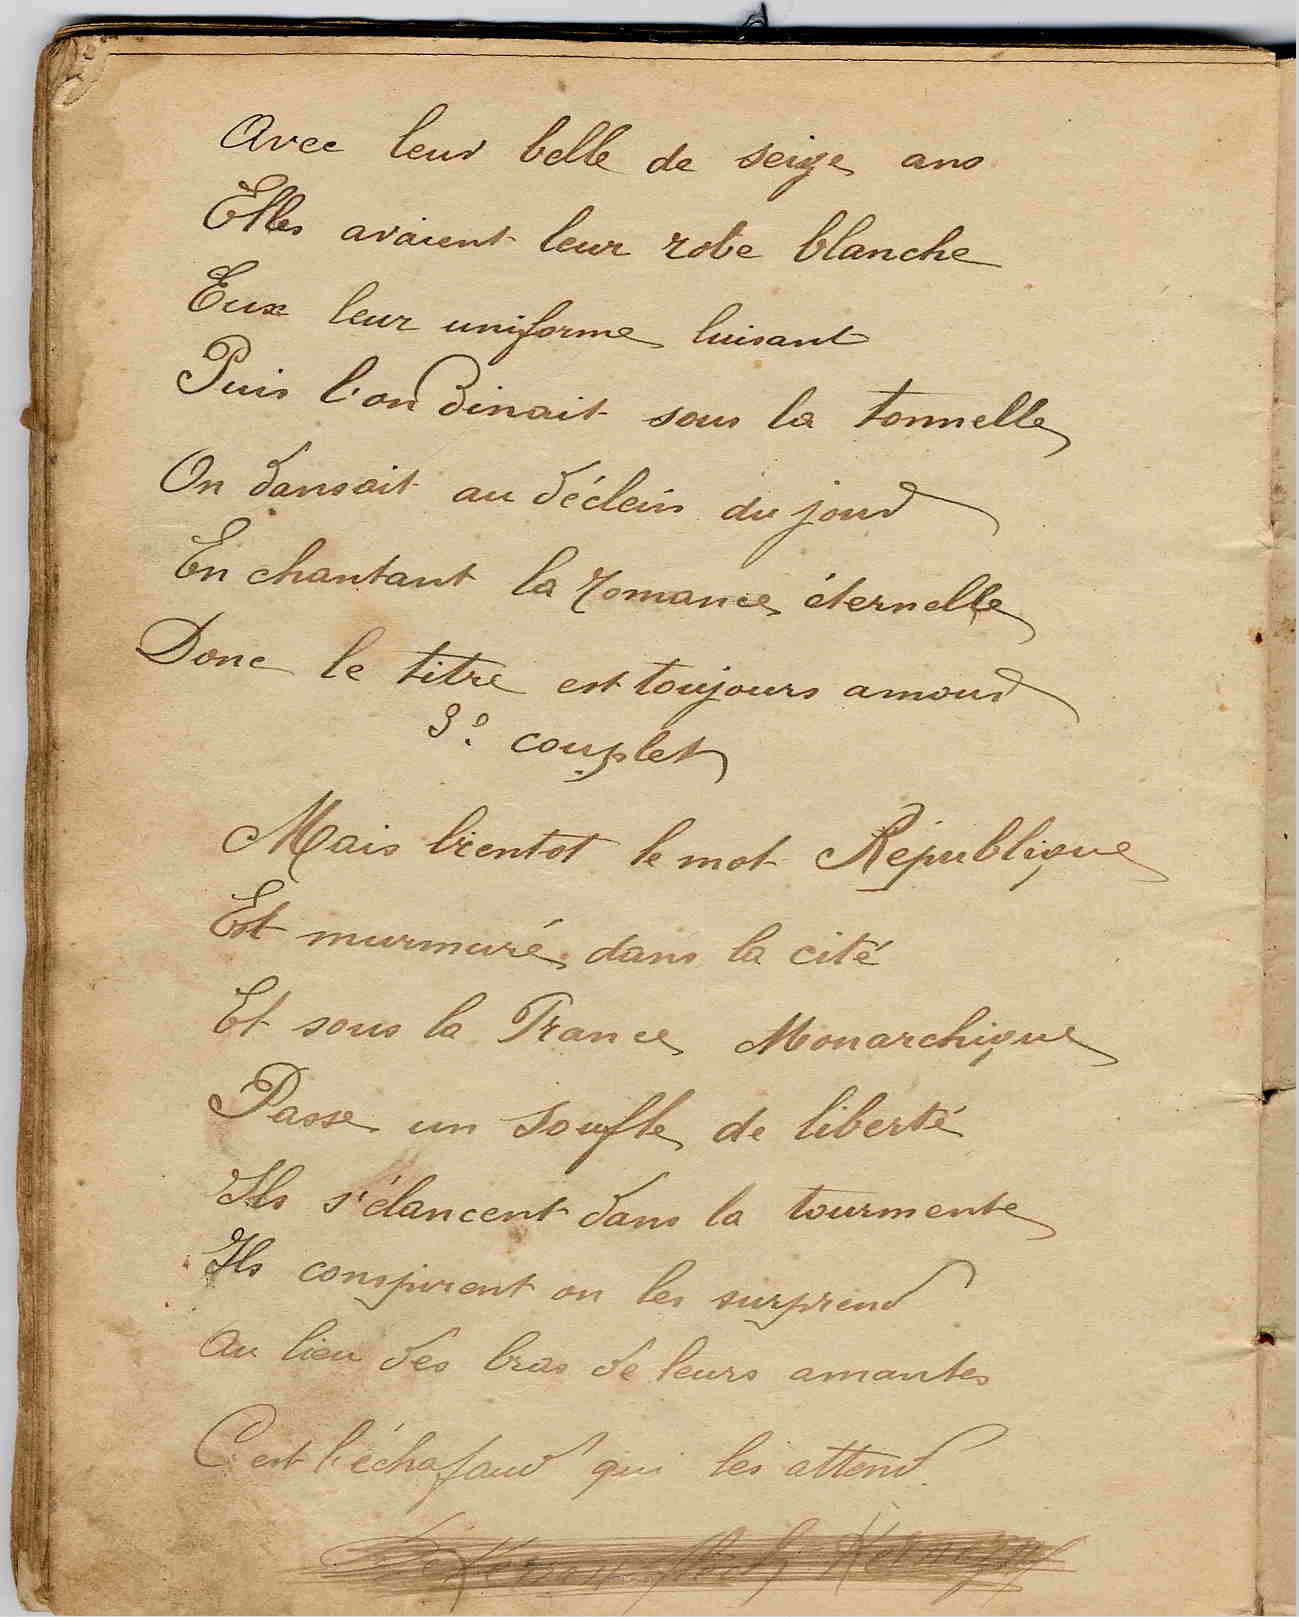 Avec leur belle de seize ans
Elles avaient leur robe blanche
Eux leur uniforme luisant
Puis l'on dinait sous la tonnelle
On dansait au déclein du jour
En chantant la romance éternelle
Donc le titre est toujours amour
3e couplet
Mais bientot le mot République
Est murmuré dans la cité
Et sous la France Monarchique
Passe un soufle de liberté
Ils s'élancent dans la tourmente
Ils conspirent on les surprend
Au lieu des bras de leurs amantes
C'est l'échafaud qui les attend.